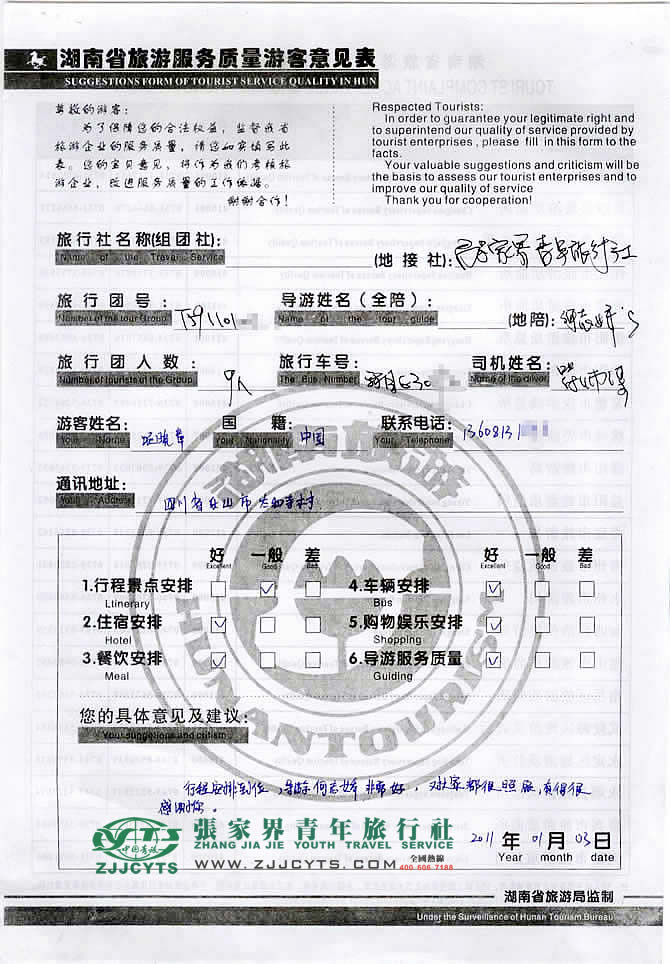 湖南省旅游服务质量游客意见表
SUGGESTIONS FORM OF TOURIST SERVICE QUALITY IN HUN
尊敬的游客：
为了保障您的合法权益，监督我省
旅游企业的服务质量，请您如实填写此
表。您的宝贵意见，将作为我们考核旅
游企业，改进服务质量的工作依据。
谢谢合作！
Respected Tourists:
In order to guarantee your legitimate right and
to superintend our quality of service provided by
tourist enterprises , please fill in this form to the
facts.
Your valuable suggestions and criticism will be
the basis to assess our tourist enterprises and to
improve our quality of service
Thank you for cooperation!
旅行社名称(组团社)：
Name of the Travel Service
(地接社)：
旅行团号：
Number of the tour Group
导游姓名(全陪)：
Name of the tour guide
(地陪)：
旅行团人数：
Number of tourists of the Group
9人
旅行车号：
The Bus Number
司机姓名：
Name of the driver
游客姓名：
Your Name
国籍：
Your Nationality
中国
联系电话：
Your Telephone
13608131
通讯地址：
Your Address
四川省乐山市
好 一般 差
Excellent Good Bad
好 一般 差
Excellent Good Bad
1.行程景点安排
Ltinerary
4.车辆安排
Bus
2.住宿安排
Hotel
5.购物娱乐安排
Shopping
3.餐饮安排
Meal
6.导游服务质量
Guiding
湖南旅游
HUNAN TOURISM
您的具体意见及建议：
Your suggetions and critism
行程安排到位，导游何志娇非常好，对大家都很照顾，真得很
感谢您。
中国青旅
ZJJCYTS
張家界青年旅行社
ZHANG JIA JIE YOUTH TRAVEL SERVICE
WWW.ZJJCYTS.COM
全國熱線
400-606-7188
2011 年 01 月 03 日
Year month date
湖南省旅游局监制
Under the Surveillance of Hunan Tourism Bureau